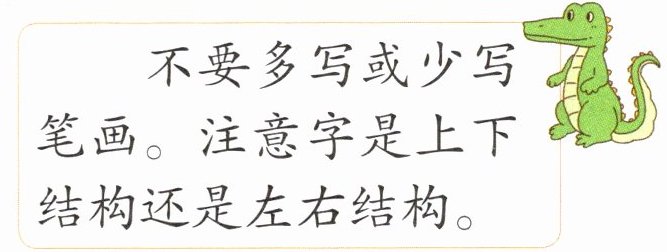 不要多写或少写
笔画。注意字是上下
结构还是左右结构。